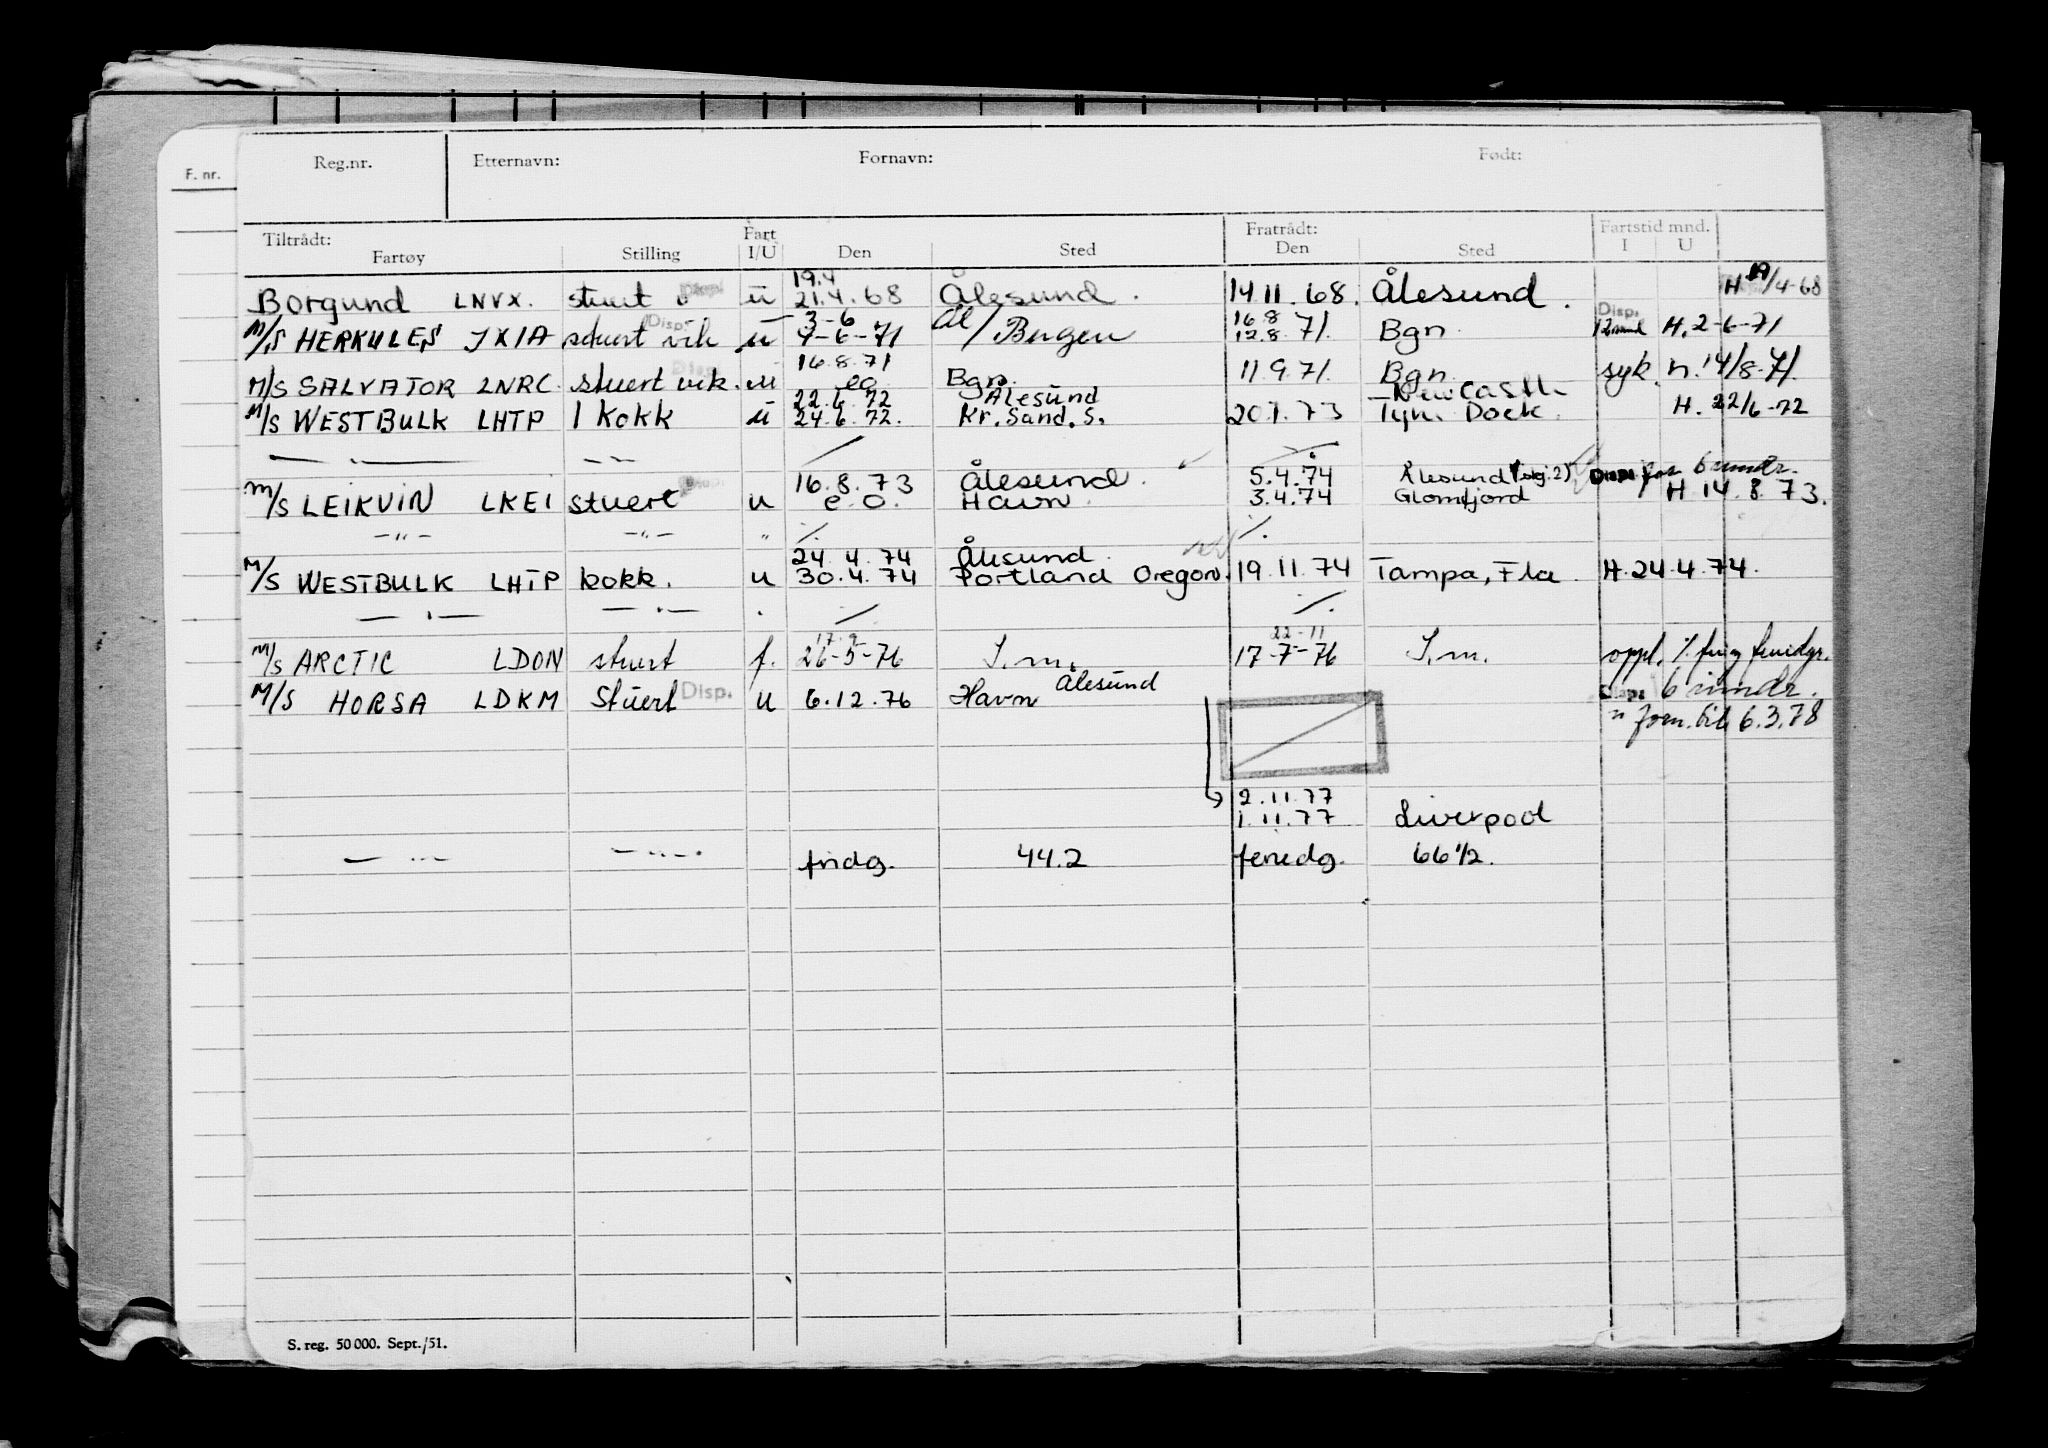 F. nr.
Reg.nr. Etternavn: Fornavn: Født:
Tiltrådt: Fart Fratrådt: Fartstid mnd.
Fartøy Stilling I/U Den Sted Den Sted I U
19.4 H 19/4-68
Borgund LNVX. stuert Disp. u 21.4.68 Ålesund. 14.11.68. Ålesund.
3-6 Ål/ 16.8 Disp.
M/S HERKULES JXIA stuert vik Disp. u 4-6-71 Bergen 12.8.71. Bgn 12mnd H. 2-6-71
16.8.71
M/S SALVATOR LNRC. stuert vik. Disp. u eo Bgn. 11.9.71. Bgn syk. n. 14/8-71.
22.6.72 Ålesund Newcastle
M/S WESTBULK LHTP 1 kokk u 24.6.72. Kr.Sand.S. 20.1.73 Tyne Dock. H. 22/6-72
— . — — — / /
16.8.73 Ålesund. 5.4.74 Ålesund (sbj. 2) Disp. for 6 mndr.
M/S LEIKVIN LKEI stuert Disp. u e.o. Havn 3.4.74 Glomfjord H 14.8.73.
— " — — " — " ./. ./.
24.4.74 Ålesund.
M/S WESTBULK LHTP kokk. u 30.4.74 Portland Oregon. 19.11.74 Tampa, Fla. H. 24.4.74.
— . — — . — . ./. ./.
22-11
M/S ARCTIC LDON stuert f. 26-5-76 S.m. 17-7-76 S.m. oppl. % fri og feriedgr.
M/S HORSA LDKM Stuert Disp. u 6.12.76 Havn Ålesund Disp. 6 mndr.
" forn. til 6.3.78
2.11.77
1.11.77 Liverpool
— " — — " — fridg. 44.2 feriedg. 66 1/2.
S. reg. 50 000. Sept./51.